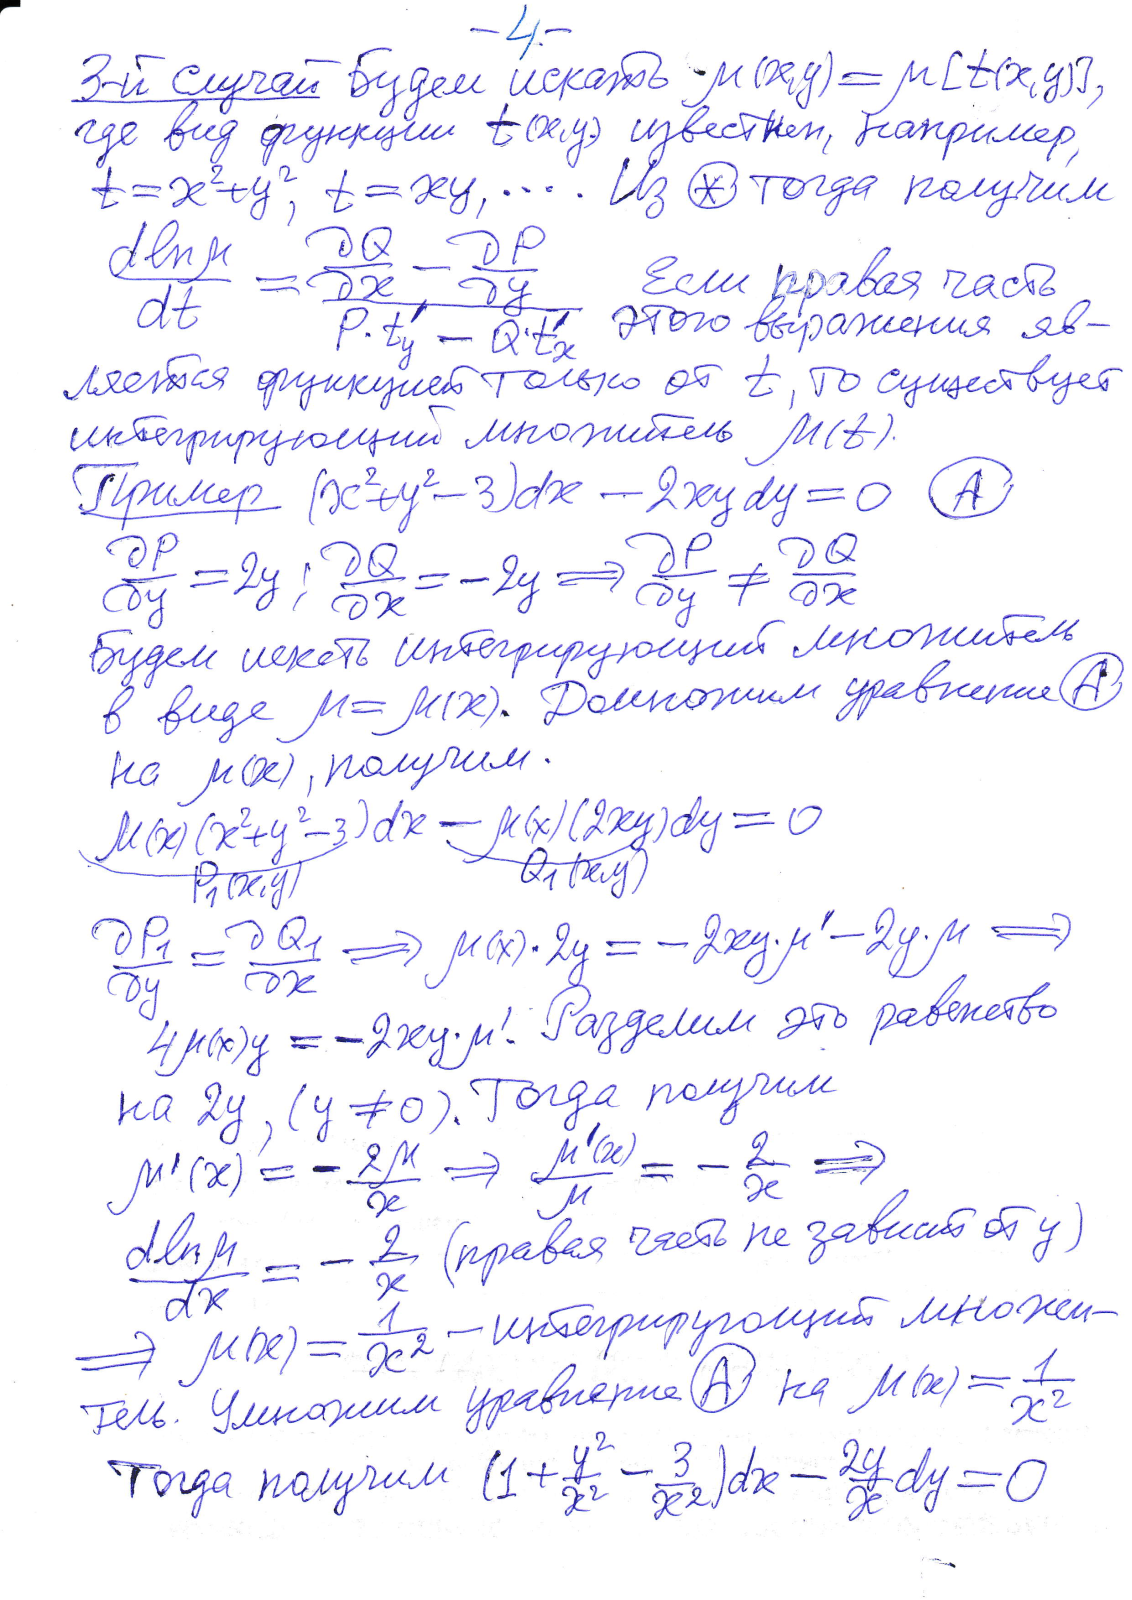 -4.-
3-й случай Будем искать μ(x,y)=μ[t(x,y)],
где вид функции t(x,y) известен, например,
t=x²+y², t=xy, .... Из (*) тогда получим
dlnμ/dt = (∂Q/∂x - ∂P/∂y)/(P·t'y - Q·t'x) Если правая часть
этого выражения яв-
ляется функцией только от t, то существует
интегрирующий множитель μ(t).
Пример (x²+y²-3)dx - 2xydy=0 (A)
∂P/∂y = 2y; ∂Q/∂x = -2y ⇒ ∂P/∂y ≠ ∂Q/∂x
Будем искать интегрирующий множитель
в виде μ=μ(x). Домножим уравнение (A)
на μ(x), получим.
μ(x)(x²+y²-3)dx - μ(x)(2xy)dy=0
P₁(x,y) Q₁(x,y)
∂P₁/∂y = ∂Q₁/∂x ⇒ μ(x)·2y = -2xy·μ' - 2y·μ ⇒
4μ(x)y = -2xy·μ'. Разделим это равенство
на 2y, (y≠0). Тогда получим
μ'(x) = -2μ/x ⇒ μ'(x)/μ = -2/x ⇒
dlnμ/dx = -2/x (правая часть не зависит от y)
⇒ μ(x)=1/x² - интегрирующий множи-
тель. Умножим уравнение (A) на μ(x)=1/x²
Тогда получим (1+y²/x² - 3/x²)dx - 2y/x dy=0